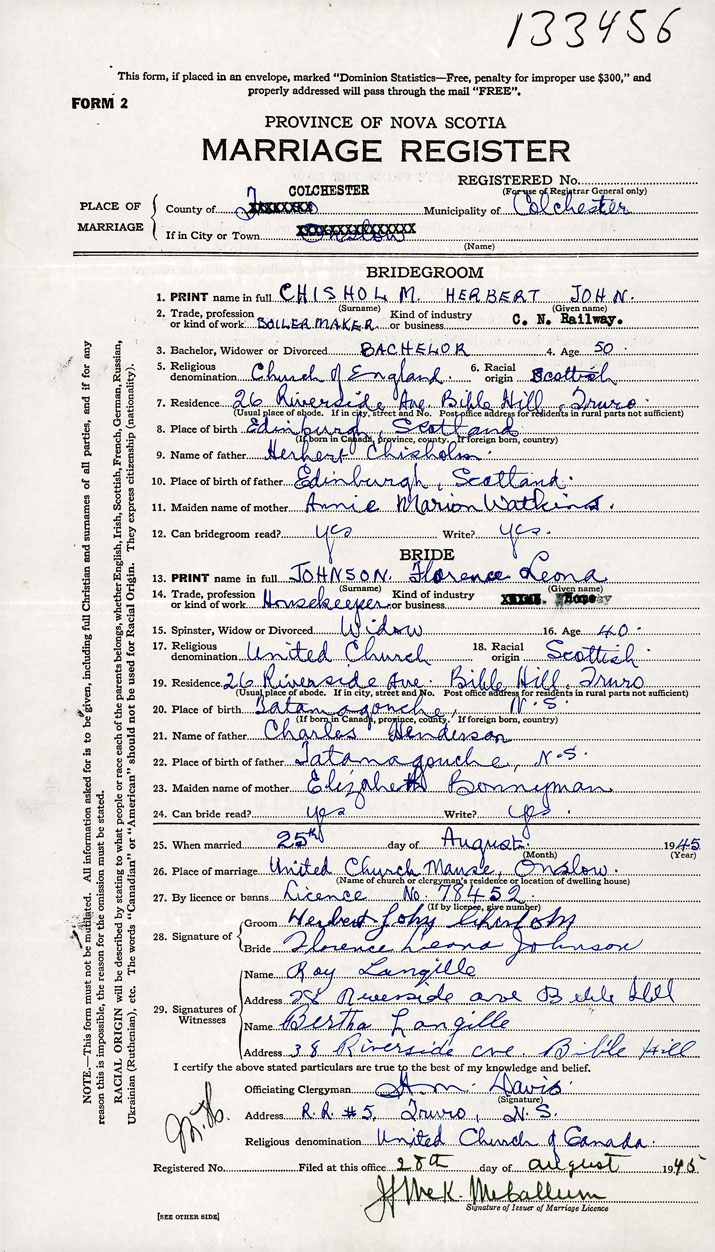 133456
This form, if placed in an envelope, marked "Dominion Statistics—Free, penalty for improper use $300," and
properly addressed will pass through the mail "FREE".
FORM 2
PROVINCE OF NOVA SCOTIA
MARRIAGE REGISTER
REGISTERED No.
(For use of Registrar General only)
PLACE OF MARRIAGE
COLCHESTER
County of Municipality of Colchester
If in City or Town
(Name)
BRIDEGROOM
1. PRINT name in full CHISHOLM HERBERT JOHN.
(Surname) (Given name)
2. Trade, profession or kind of work BOILERMAKER Kind of industry or business C. N. Railway.
3. Bachelor, Widower or Divorced BACHELOR 4. Age 50
5. Religious denomination Church of England. 6. Racial origin Scottish
7. Residence 26 Riverside Ave Bible Hill, Truro
(Usual place of abode. If in city, street and No. Post office address for residents in rural parts not sufficient)
8. Place of birth Edinburgh, Scotland
(If born in Canada, province, county. If foreign born, country)
9. Name of father Herbert Chisholm
10. Place of birth of father Edinburgh, Scotland.
11. Maiden name of mother Annie Marion Watkins.
12. Can bridegroom read? yes Write? yes.
BRIDE
13. PRINT name in full JOHNSON. Florence Leona
(Surname) (Given name)
14. Trade, profession or kind of work Housekeeper Kind of industry or business
15. Spinster, Widow or Divorced Widow 16. Age 40.
17. Religious denomination United Church 18. Racial origin Scottish
19. Residence 26 Riverside Ave. Bible Hill, Truro
(Usual place of abode. If in city, street and No. Post office address for residents in rural parts not sufficient)
20. Place of birth Tatamagouche, N.S.
(If born in Canada, province, county. If foreign born, country)
21. Name of father Charles Henderson
22. Place of birth of father Tatamagouche, N.S.
23. Maiden name of mother Elizabeth Bonnyman
24. Can bride read? yes Write? yes.
25. When married 25th day of August. 1945
(Month) (Year)
26. Place of marriage United Church Manse, Onslow.
(Name of church or clergyman's residence or location of dwelling house)
27. By licence or banns Licence No 78452
(If by licence, give number)
28. Signature of Groom Herbert John Chisholm
Bride Florence Leona Johnson
29. Signatures of Witnesses
Name Roy Langille
Address Riverside ave Bible Hill
Name Bertha Langille
Address 38 Riverside ave. Bible Hill
I certify the above stated particulars are true to the best of my knowledge and belief.
Officiating Clergyman Davis
(Signature)
Address R.R #5, Truro, N.S.
Religious denomination United Church of Canada.
Registered No. Filed at this office 28th day of august 1945
McK. McCallum
Signature of Issuer of Marriage Licence
[SEE OTHER SIDE]
NOTE.—This form must not be mutilated. All information asked for is to be given, including full Christian and surnames of all parties, and if for any
reason this is impossible, the reason for the omission must be stated.
RACIAL ORIGIN will be described by stating to what people or race each of the parents belongs, whether English, Irish, Scottish, French, German, Russian,
Ukrainian (Ruthenian), etc. The words "Canadian" or "American" should not be used for Racial Origin. They express citizenship (nationality).